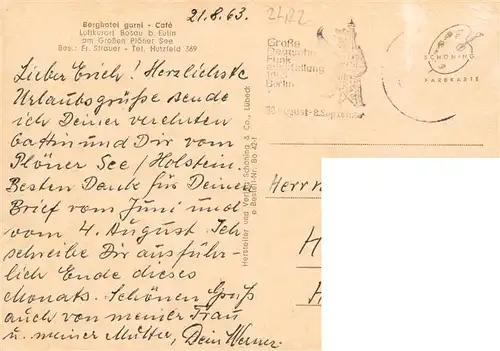 Berghotel garni - Café
Luftkurort Bosau b. Eutin
am Großen Plöner See
Bes.: Fr. Strauer - Tel. Hutzfeld 369
21.8.63.
Lieber Erich! Herzlichste
Urlaubsgrüße sende
ich Deiner verehrten
Gattin und Dir vom
Plöner See/Holstein.
Besten Dank für Deinen
Brief vom Juni und
vom 4. August. Ich
schreibe Dir ausführ-
lich Ende dieses
Monats. Schönen Gruß
auch von meiner Frau
u. meiner Mutter, Dein Werner.
Hersteller und Verlag Schöning & Co., Lübeck
Bestell-Nr. Bo 42-1
Große
Deutsche
Funk
Ausstellung
1963
Berlin
30. August - 8. September
SCHÖNING
FARBKARTE
Herrn
H